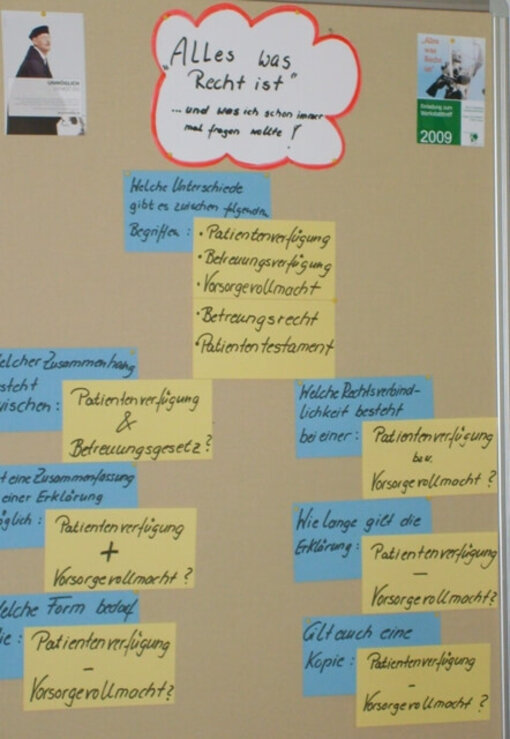 UNMÖGLICH
"Alles was
Recht ist"
... und was ich schon immer
mal fragen wollte !
"Alles
was
Recht
ist"
Einladung zum
Werkstatttreff
2009
Welche Unterschiede
gibt es zwischen folgenden
Begriffen :
• Patientenverfügung
• Betreuungsverfügung
• Vorsorgevollmacht
• Betreungsrecht
• Patiententestament
elcher Zusammenhang
steht
wischen :
Patientenverfügung
&
Betreuungsgesetz ?
t eine Zusammenfassung
einer Erklärung
öglich :
Patientenverfügung
+
Vorsorgevollmacht ?
elche Form bedarf
ie :
Patientenverfügung
–
Vorsorgevollmacht ?
Welche Rechtsverbind-
lichkeit besteht
bei einer :
Patientenverfügung
bzw.
Vorsorgevollmacht ?
Wie lange gilt die
Erklärung :
Patientenverfügung
–
Vorsorgevollmacht ?
Gilt auch eine
Kopie :
Patientenverfügung
–
Vorsorgevollmacht ?